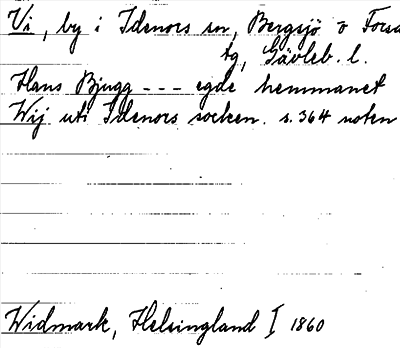 Vi, by i Idenors sn, Bergsjö o Forsa
tg, Gävleb. l.
Hans Bjugg --- egde hemmanet
Wij uti Idenors socken. s. 364 noten
Widmark, Helsingland I 1860